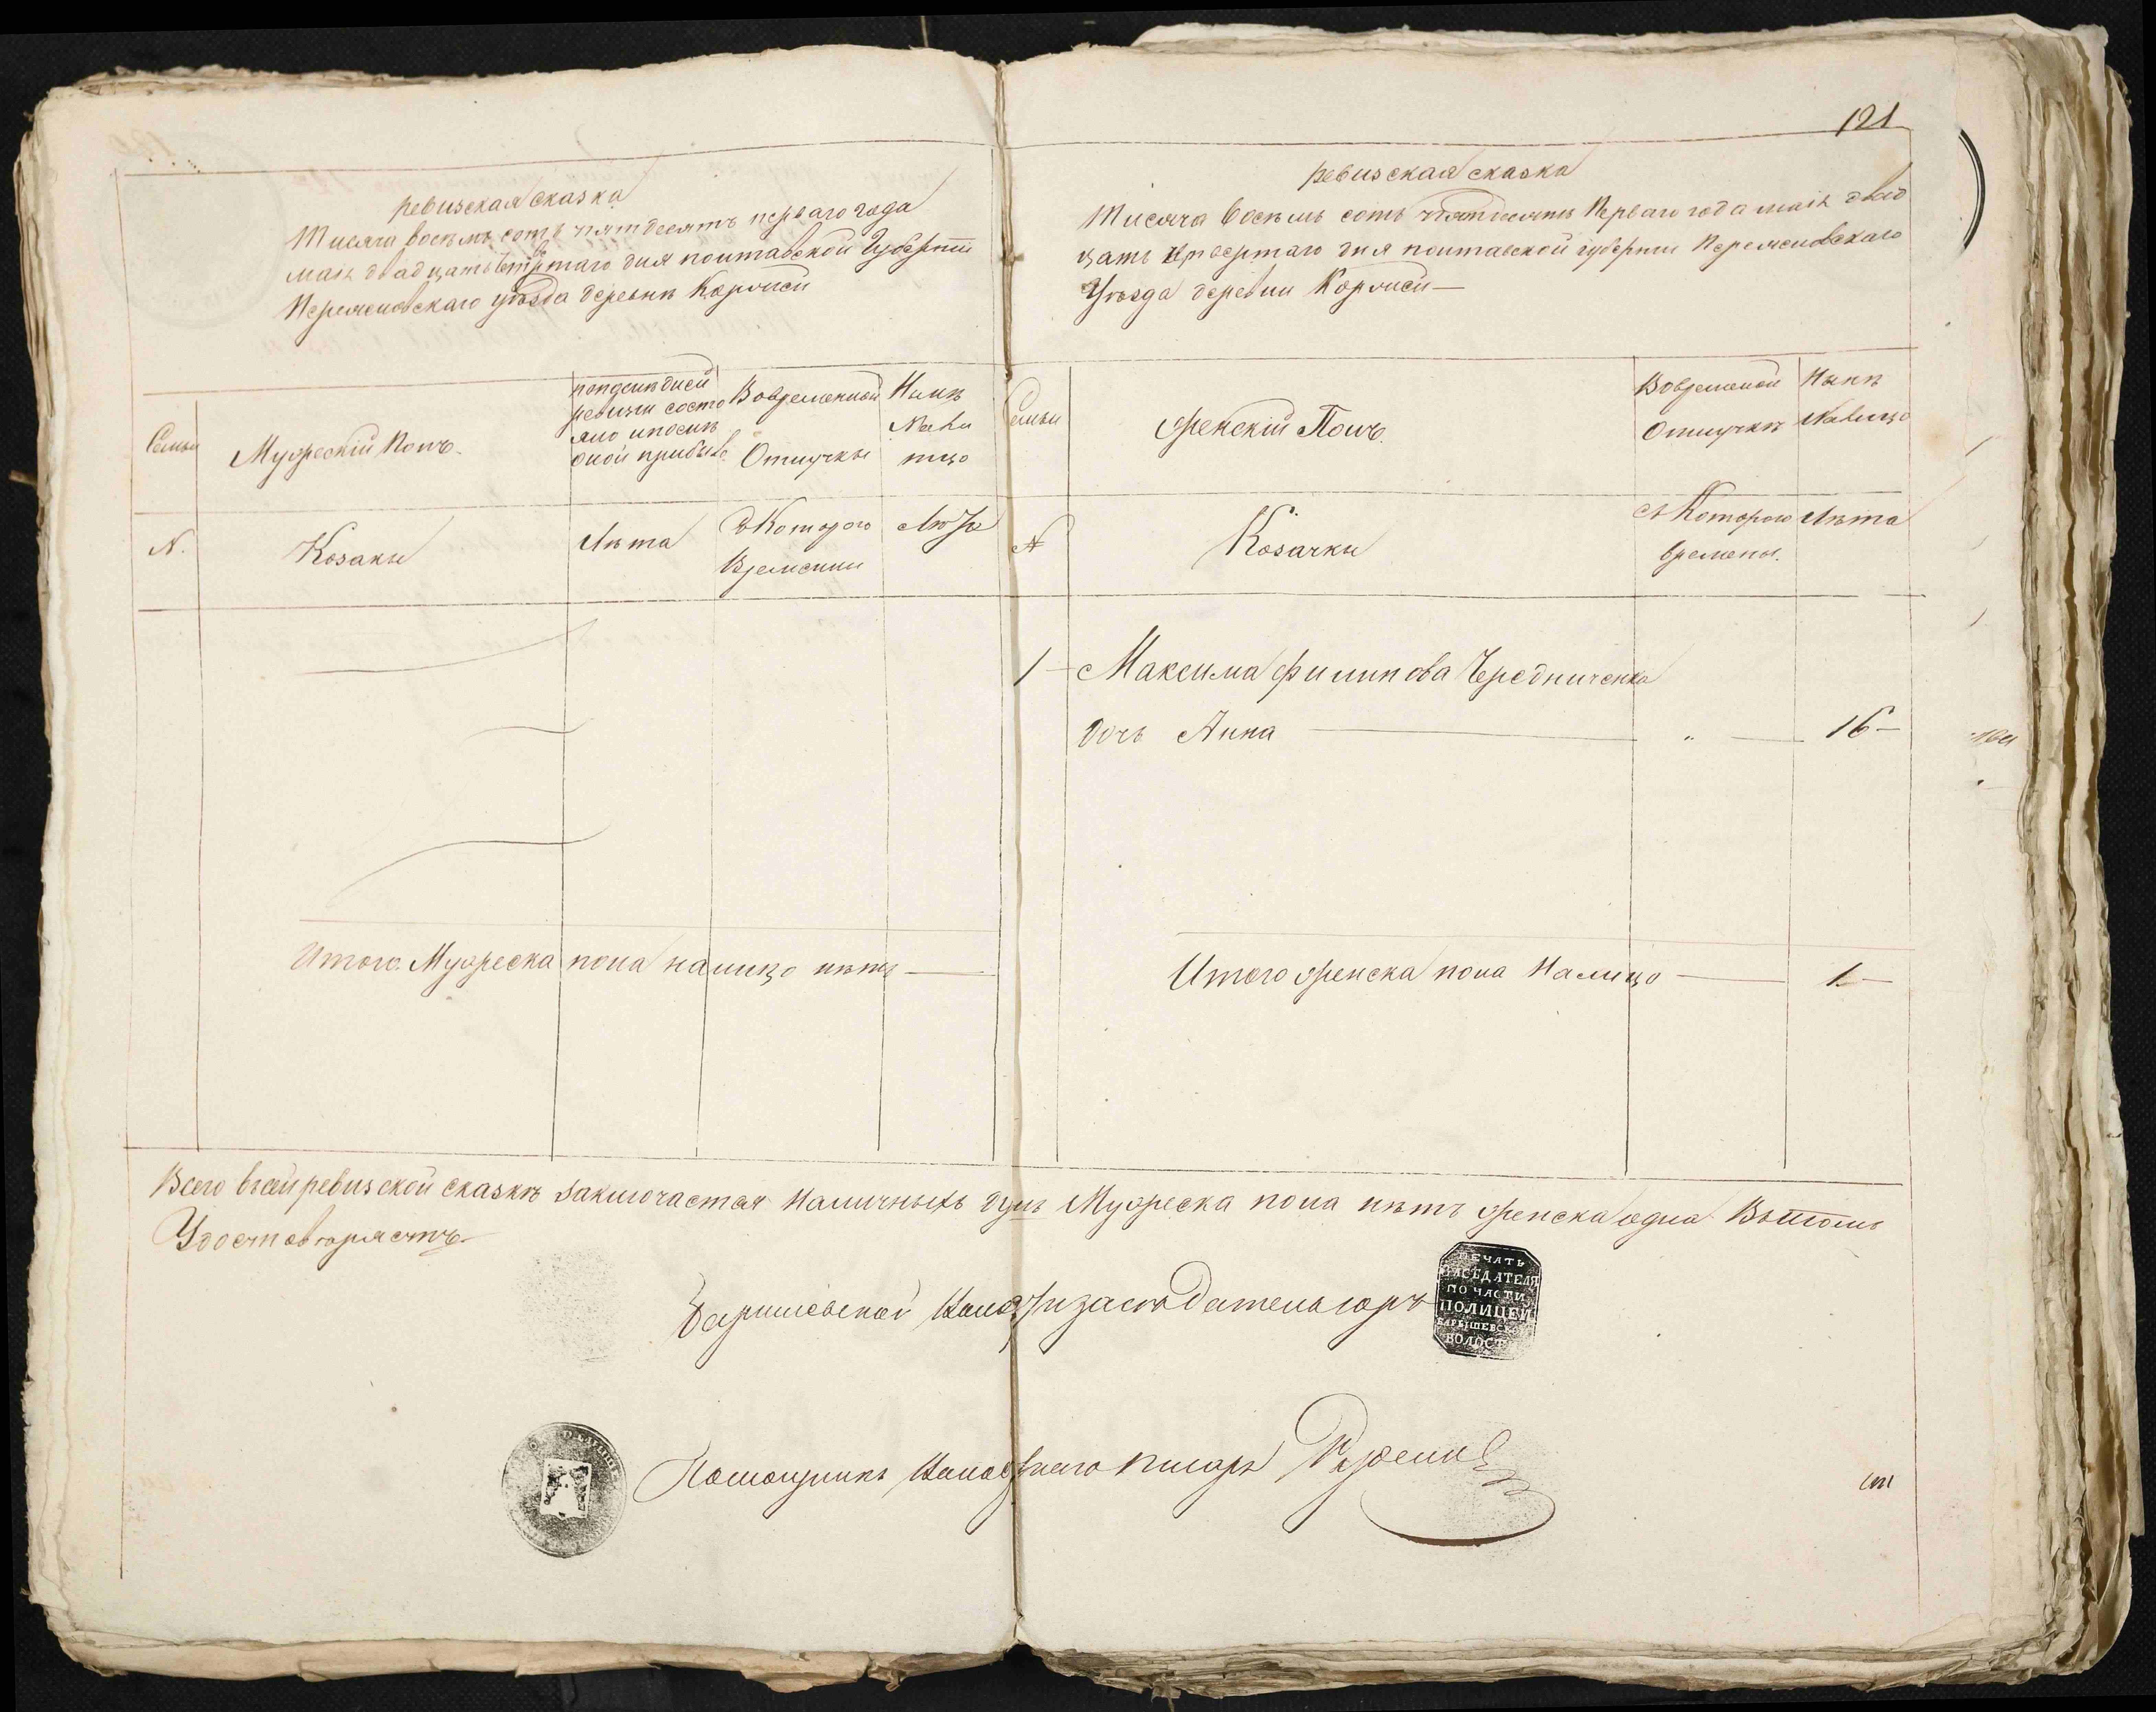 121
ревизская сказка
Тисяча восемъ сотъ пятдесятъ перваго года
маія двадцать четвертаго дня полтавской Губерніи
Переяславскаго уѣзда деревни Коржисй
Семьи
Мужескій Полъ.
попослѣдней
ревизіи состо
яло ипослѣ
оной прибыло
Вовременной
Отлучкы
Нынѣ
Нали
ицо
N.
Козакы
Лѣта
съ Которого
Времени
Лѣта
Итого Мужеска пола налицо нѣтъ
ревизская сказка
Тисяча восемь сотъ пятдесятъ Перваго года маія двад
цать четвертаго дня полтавской губерніи Переяславскаго
Уѣзда деревни Коржисй
Семьи
Женскій Полъ.
Вовременой
Отлучкѣ
Нынѣ
Налицо
N
Козачки
съ Которого
времены.
Лѣта
1 Максима Филипова Чередниченка
дочь Анна " 16
Итого женска пола Налицо 1
Всего въсей ревизской сказкѣ заключается наличныхъ душъ Мужеска пола нѣтъ женска одна Вътомъ
Удостовѣряетъ
Баришевской Волости засѣдатель
ПЕЧАТЬ
ЗАСѢДАТЕЛЯ
ПО ЧАСТИ
ПОЛИЦЕЙ
БАРЫШЕВСК
ВОЛОСТ
Помощникъ Волостнаго писаря